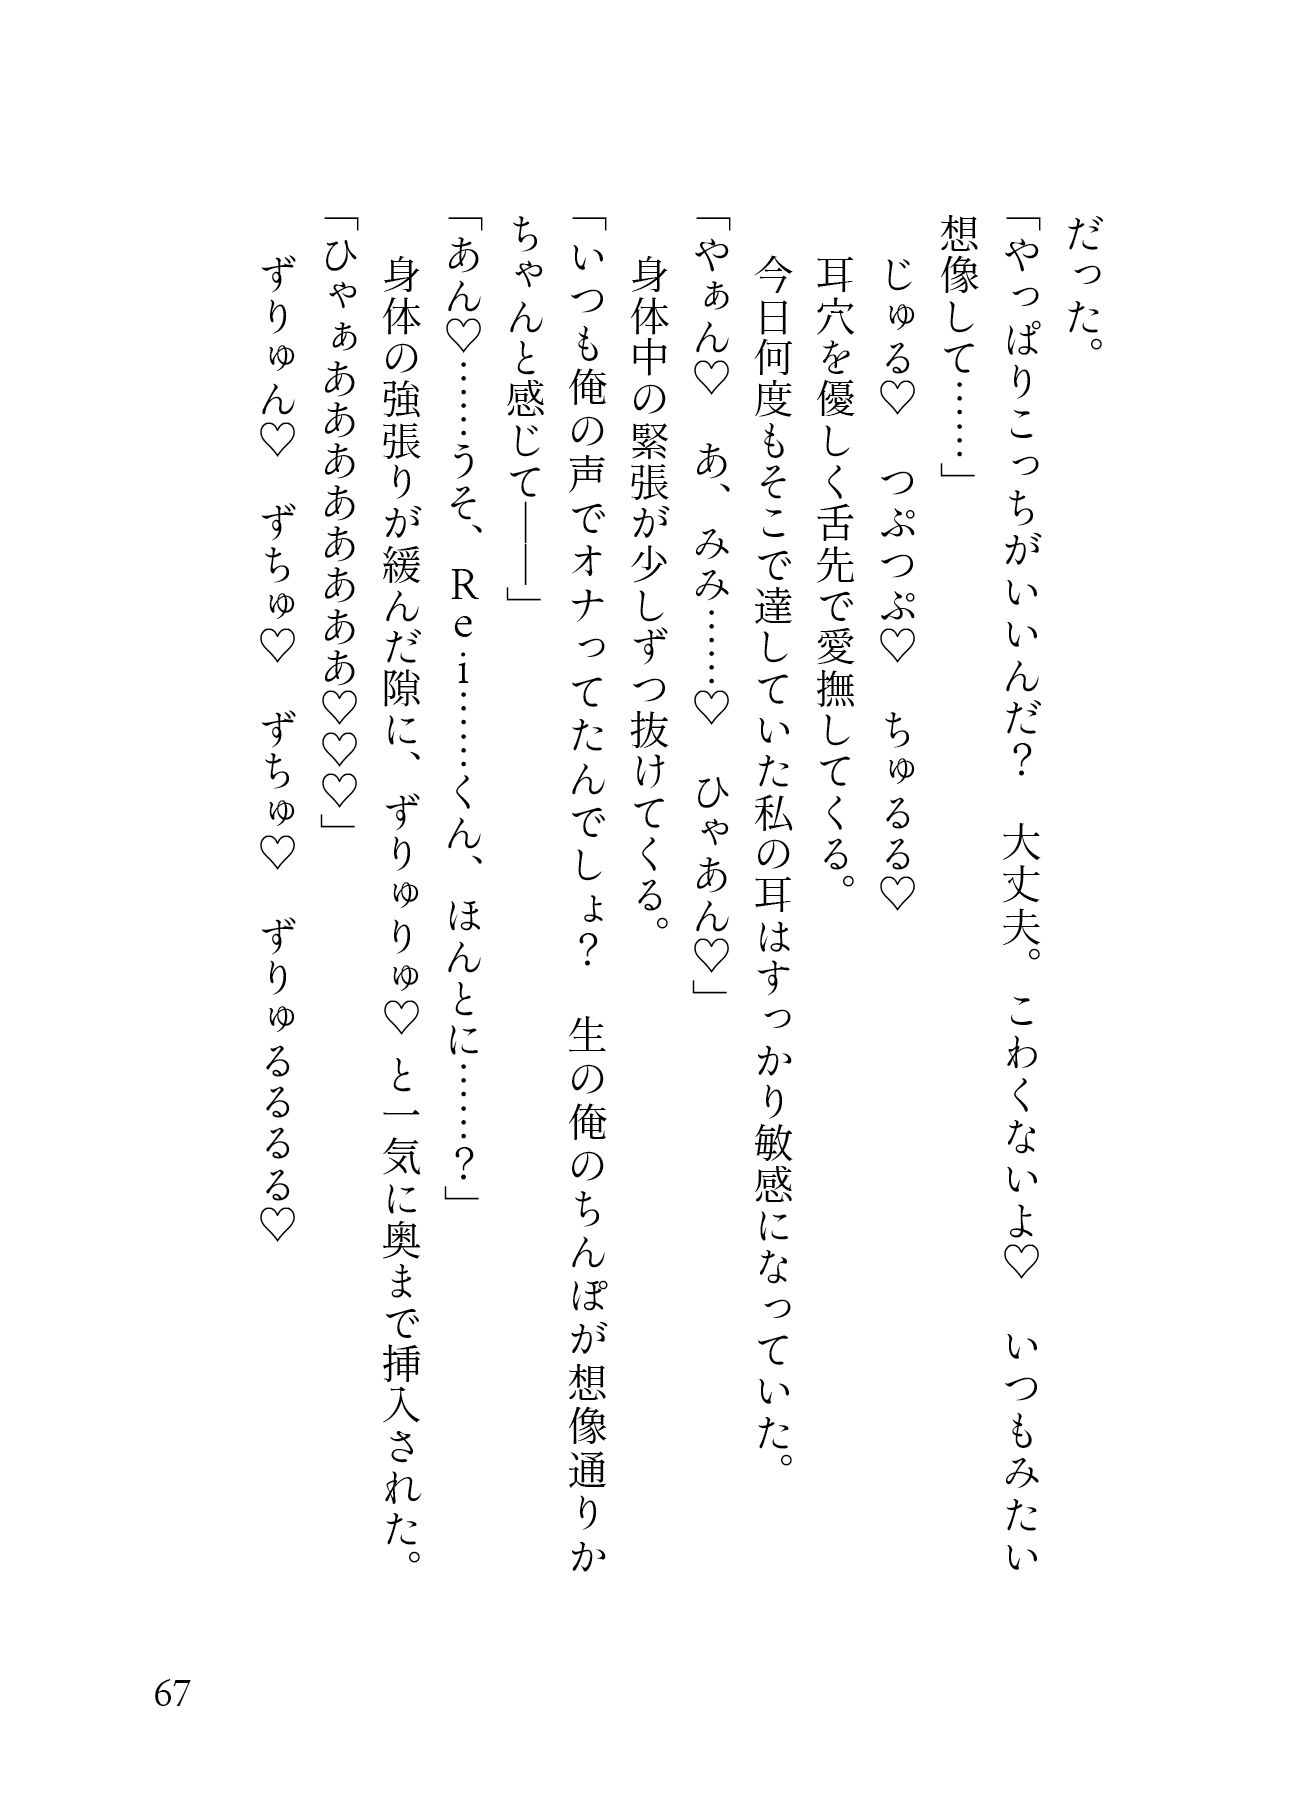 だった。
「やっぱりこっちがいいんだ？　大丈夫。こわくないよ♡　いつもみたい
想像して……」
　じゅる♡　つぷつぷ♡　ちゅるる♡
　耳穴を優しく舌先で愛撫してくる。
　今日何度もそこで達していた私の耳はすっかり敏感になっていた。
「やぁん♡　あ、みみ……♡　ひゃあん♡」
　身体中の緊張が少しずつ抜けてくる。
「いつも俺の声でオナってたんでしょ？　生の俺のちんぽが想像通りか
ちゃんと感じて――」
「あん♡……うそ、Ｒｅｉ……くん、ほんとに……？」
　身体の強張りが緩んだ隙に、ずりゅりゅ♡と一気に奥まで挿入された。
「ひゃぁああああああああ♡♡♡」
　ずりゅん♡　ずちゅ♡　ずちゅ♡　ずりゅるるるる♡
67